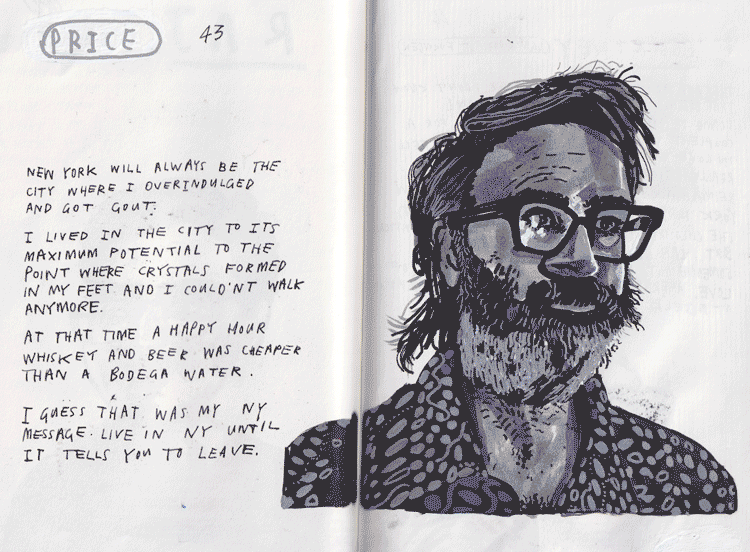 PRICE 43
NEW YORK WILL ALWAYS BE THE
CITY WHERE I OVERINDULGED
AND GOT GOUT.
I LIVED IN THE CITY TO ITS
MAXIMUM POTENTIAL TO THE
POINT WHERE CRYSTALS FORMED
IN MY FEET AND I COULD'NT WALK
ANYMORE.
AT THAT TIME A HAPPY HOUR
WHISKEY AND BEER WAS CHEAPER
THAN A BODEGA WATER.
I GUESS THAT WAS MY NY
MESSAGE. LIVE IN NY UNTIL
IT TELLS YOU TO LEAVE.